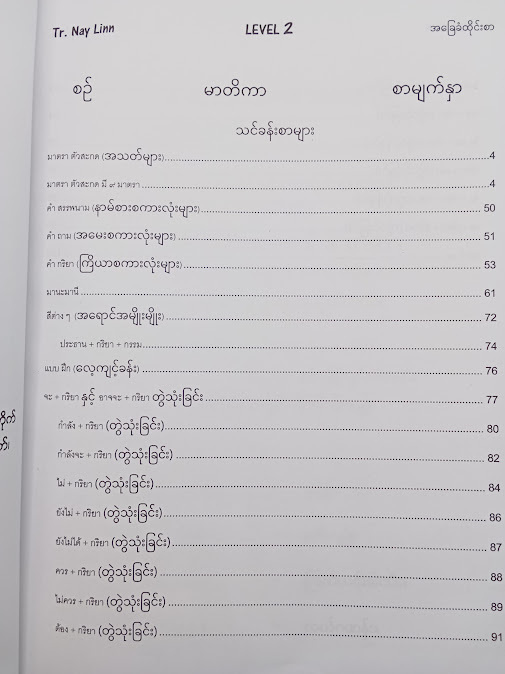 Tr. Nay Linn LEVEL 2 အခြေခံထိုင်းစာ
စဉ် မာတိကာ စာမျက်နှာ
သင်ခန်းစာများ
มาตรา ตัวสะกด (အသတ်များ)....................4
มาตรา ตัวสะกด มี ๙ มาตรา....................4
คำ สรรพนาม (နာမ်စားစကားလုံးများ)....................50
คำ ถาม (အမေးစကားလုံးများ)....................51
คำ กริยา (ကြိယာစကားလုံးများ)....................53
มานะมานี....................61
สีต่าง ๆ (အရောင်အမျိုးမျိုး)....................72
ประธาน + กริยา + กรรม....................74
แบบ ฝึก (လေ့ကျင့်ခန်း)....................76
จะ + กริยา နှင့် อาจจะ + กริยา တွဲသုံးခြင်း....................77
กำลัง + กริยา (တွဲသုံးခြင်း)....................80
กำลังจะ + กริยา (တွဲသုံးခြင်း)....................82
ไม่ + กริยา (တွဲသုံးခြင်း)....................84
ยังไม่ + กริยา (တွဲသုံးခြင်း)....................86
ยังไม่ได้ + กริยา (တွဲသုံးခြင်း)....................87
ควร + กริยา (တွဲသုံးခြင်း)....................88
ไม่ควร + กริยา (တွဲသုံးခြင်း)....................89
ต้อง + กริยา (တွဲသုံးခြင်း)....................91